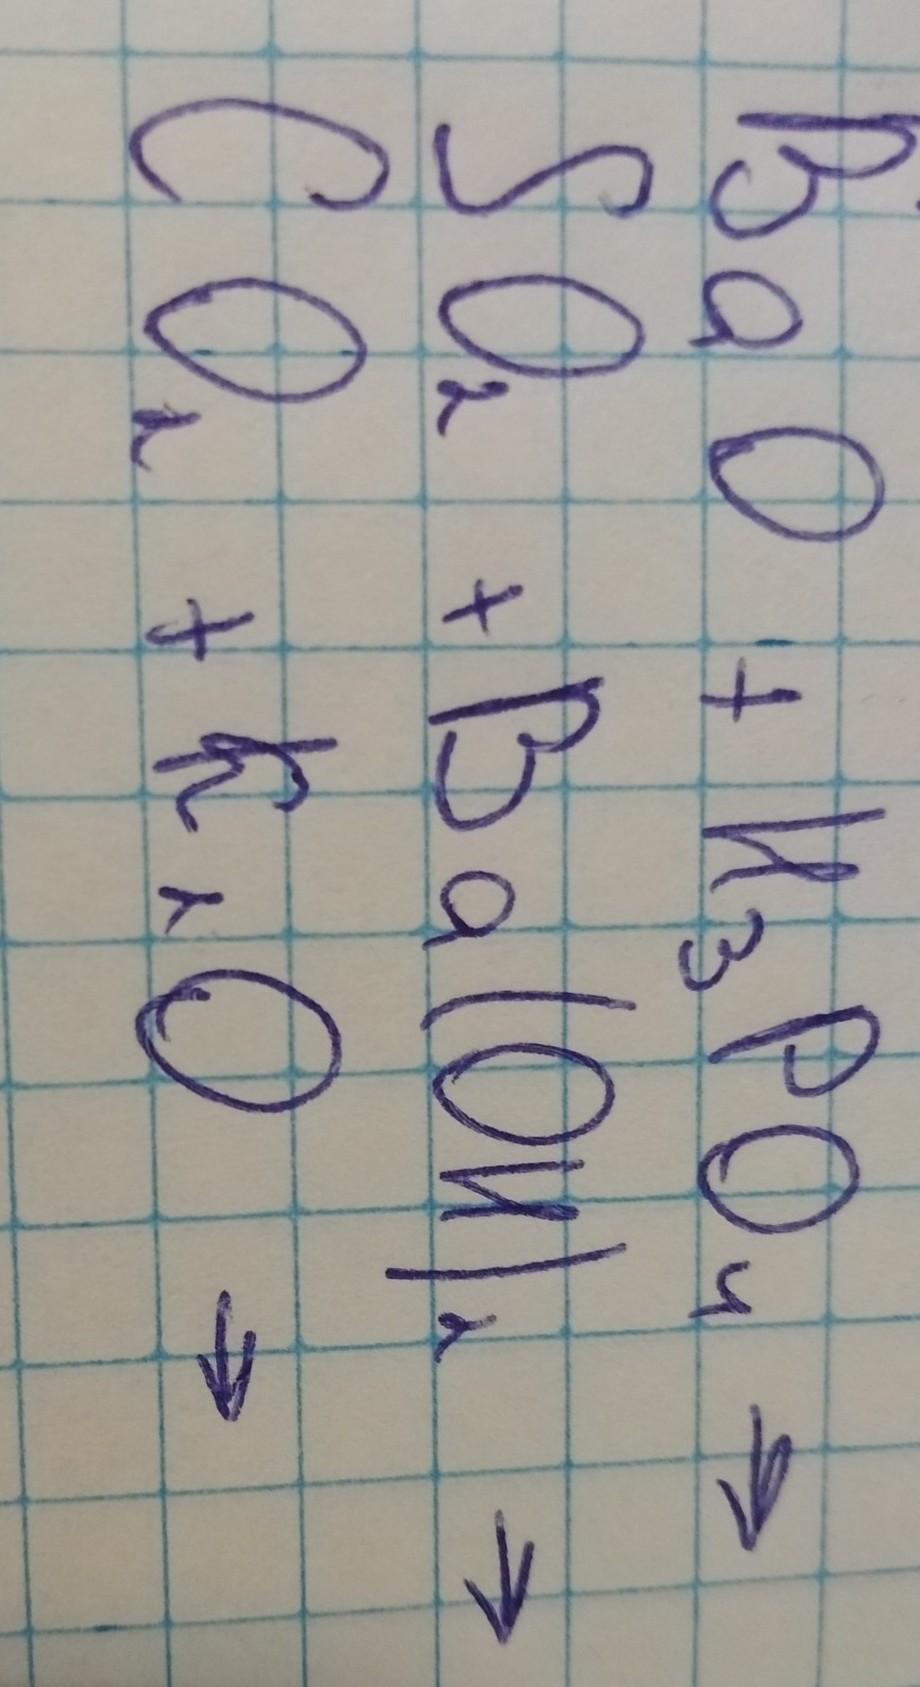 BaO + H₃PO₄ →
SO₂ + Ba(OH)₂ →
CO₂ + K₂O →